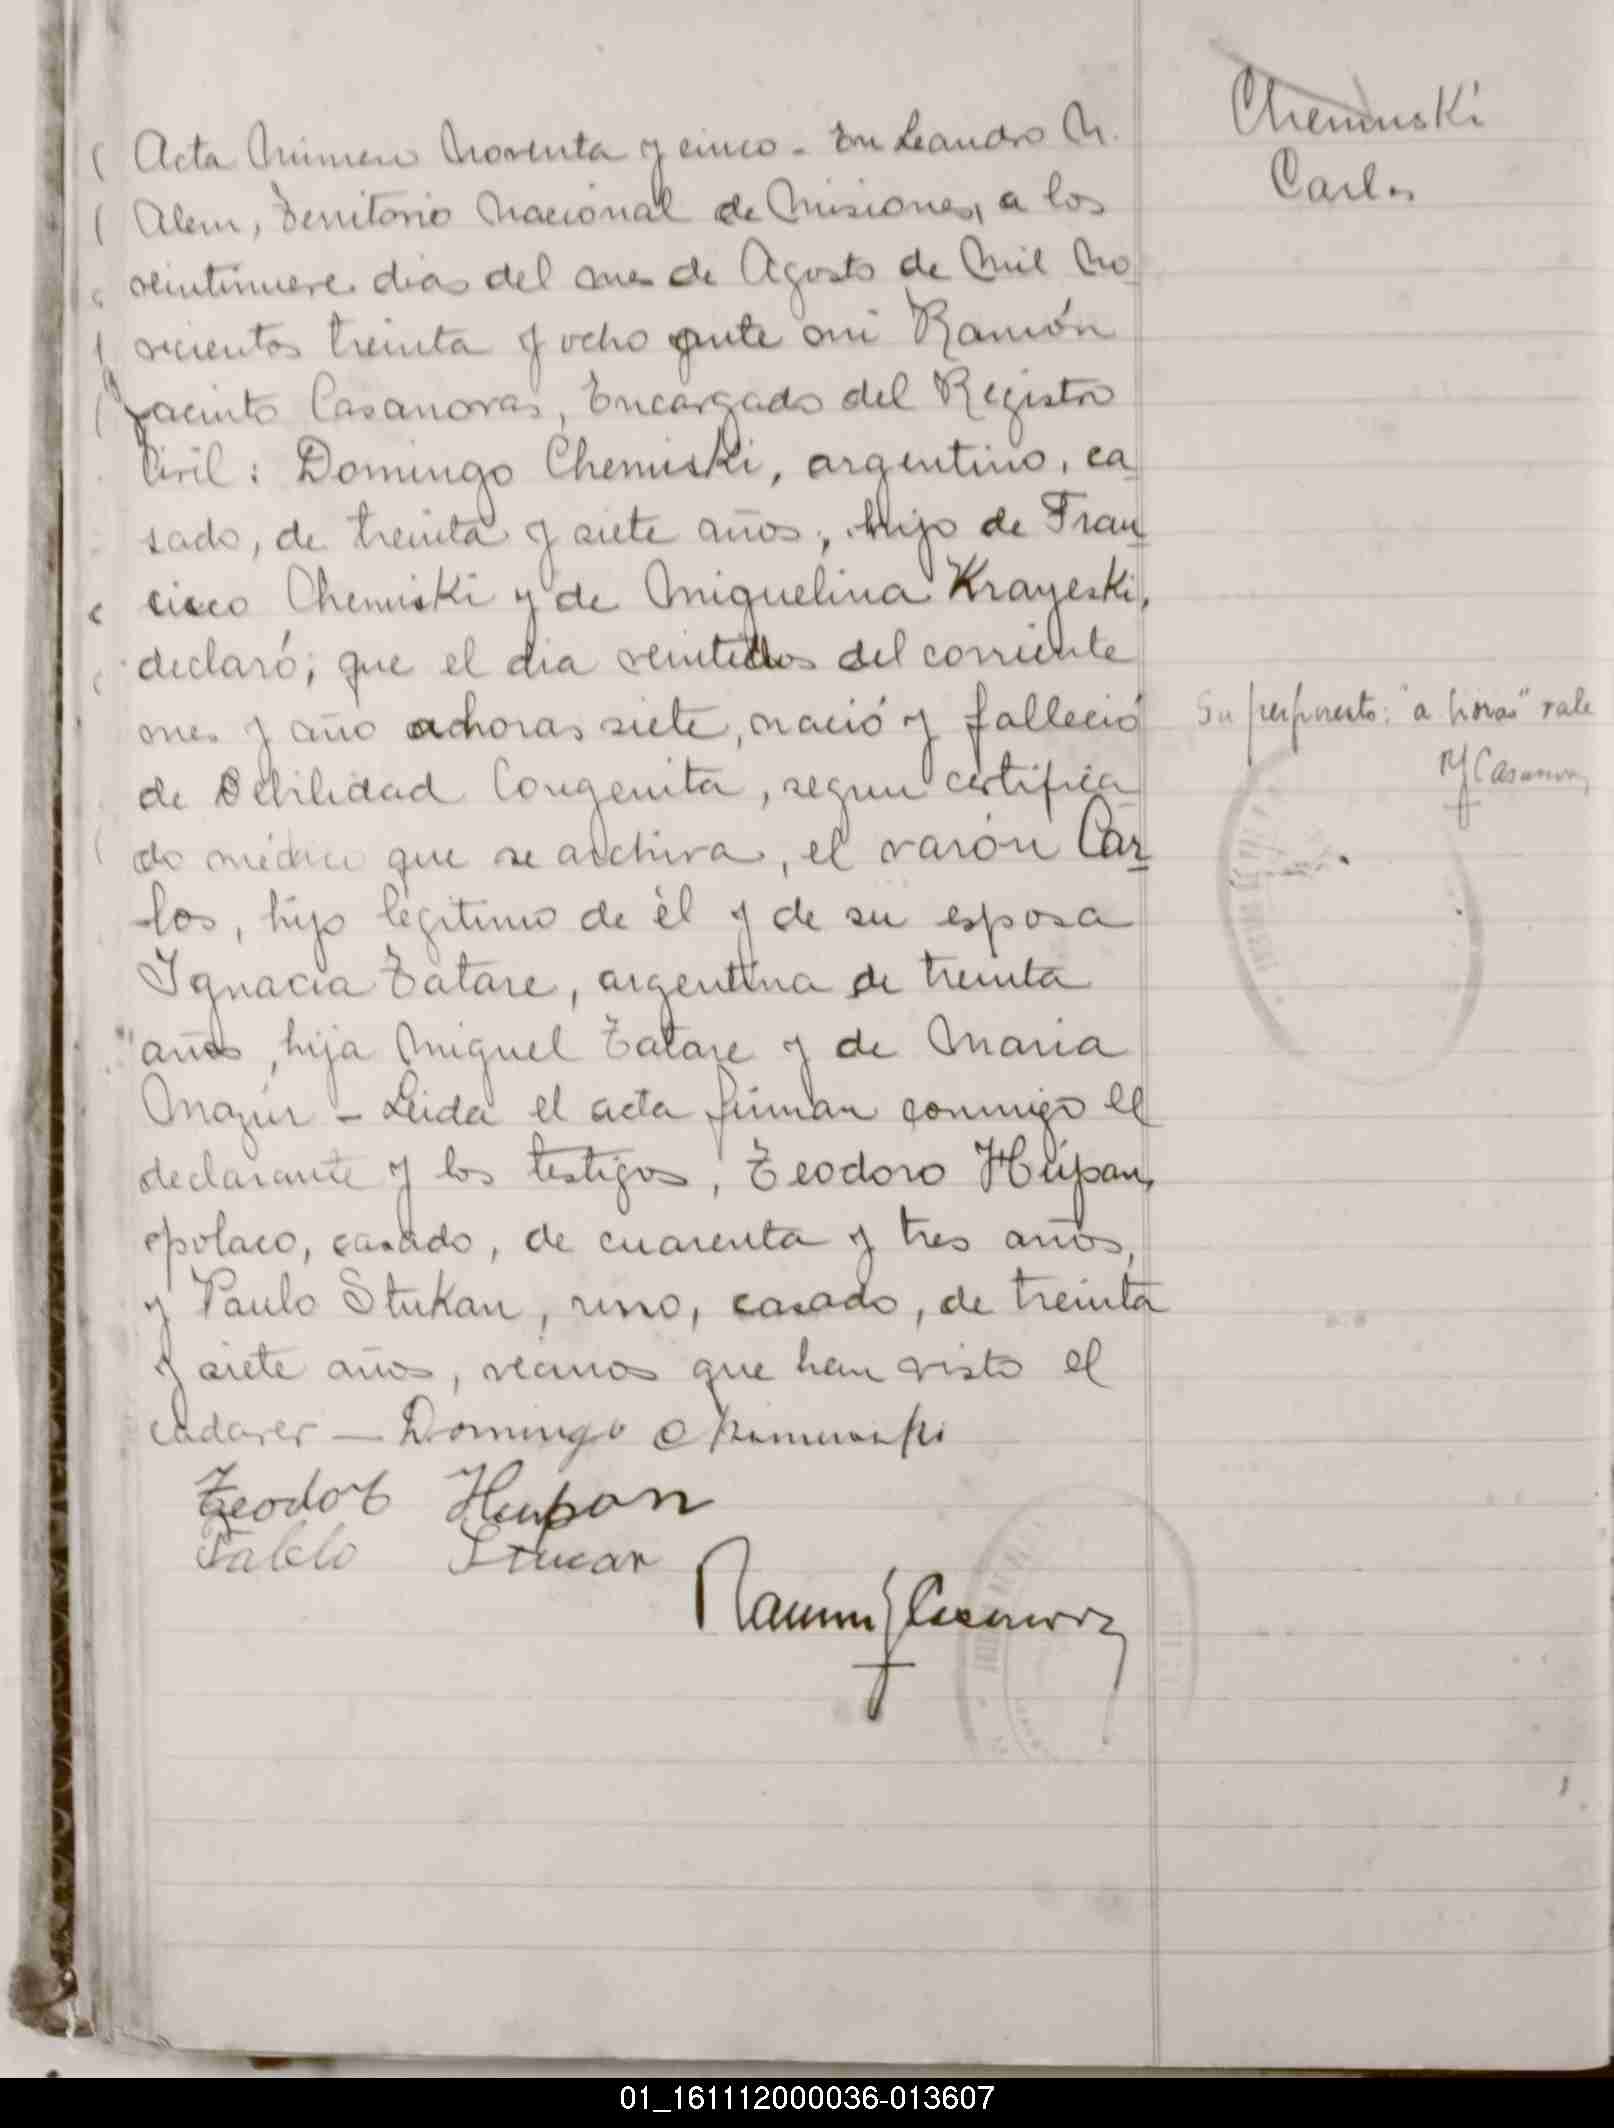 Chemuski
Carlos
Acta Número Noventa y cinco - En Leandro N.
Alem, Territorio Nacional de Misiones, a los
veintinueve dias del mes de Agosto de Mil No
vecientos treinta y ocho ante mi Ramón
Jacinto Casanovas, Encargado del Registro
Civil: Domingo Chemiski, argentino, ca
sado, de treinta y siete años, hijo de Fran
cisco Chemiski y de Miguelina Krayeski,
declaró; que el dia veintidos del corriente
mes y año a horas siete, nació y falleció
de Debilidad Congenita, segun certifica
do médico que se archiva, el varón Car
los, hijo légitimo de él y de su esposa
Ignacia Tatare, argentina de treinta
años, hija Miguel Tatare y de Maria
Mazur - Leida el acta firman conmigo el
declarante y los testigos, Teodoro Hupan,
polaco, casado, de cuarenta y tres años,
y Paulo Stukan, ruso, casado, de treinta
y siete años, vecinos que han visto el
cadaver — Domingo
Teodor Hupan
Pablo Stucan
Ramón J Casanovas
Superpuesto: "a horas" vale
RJ Casanovas
01_161112000036-013607